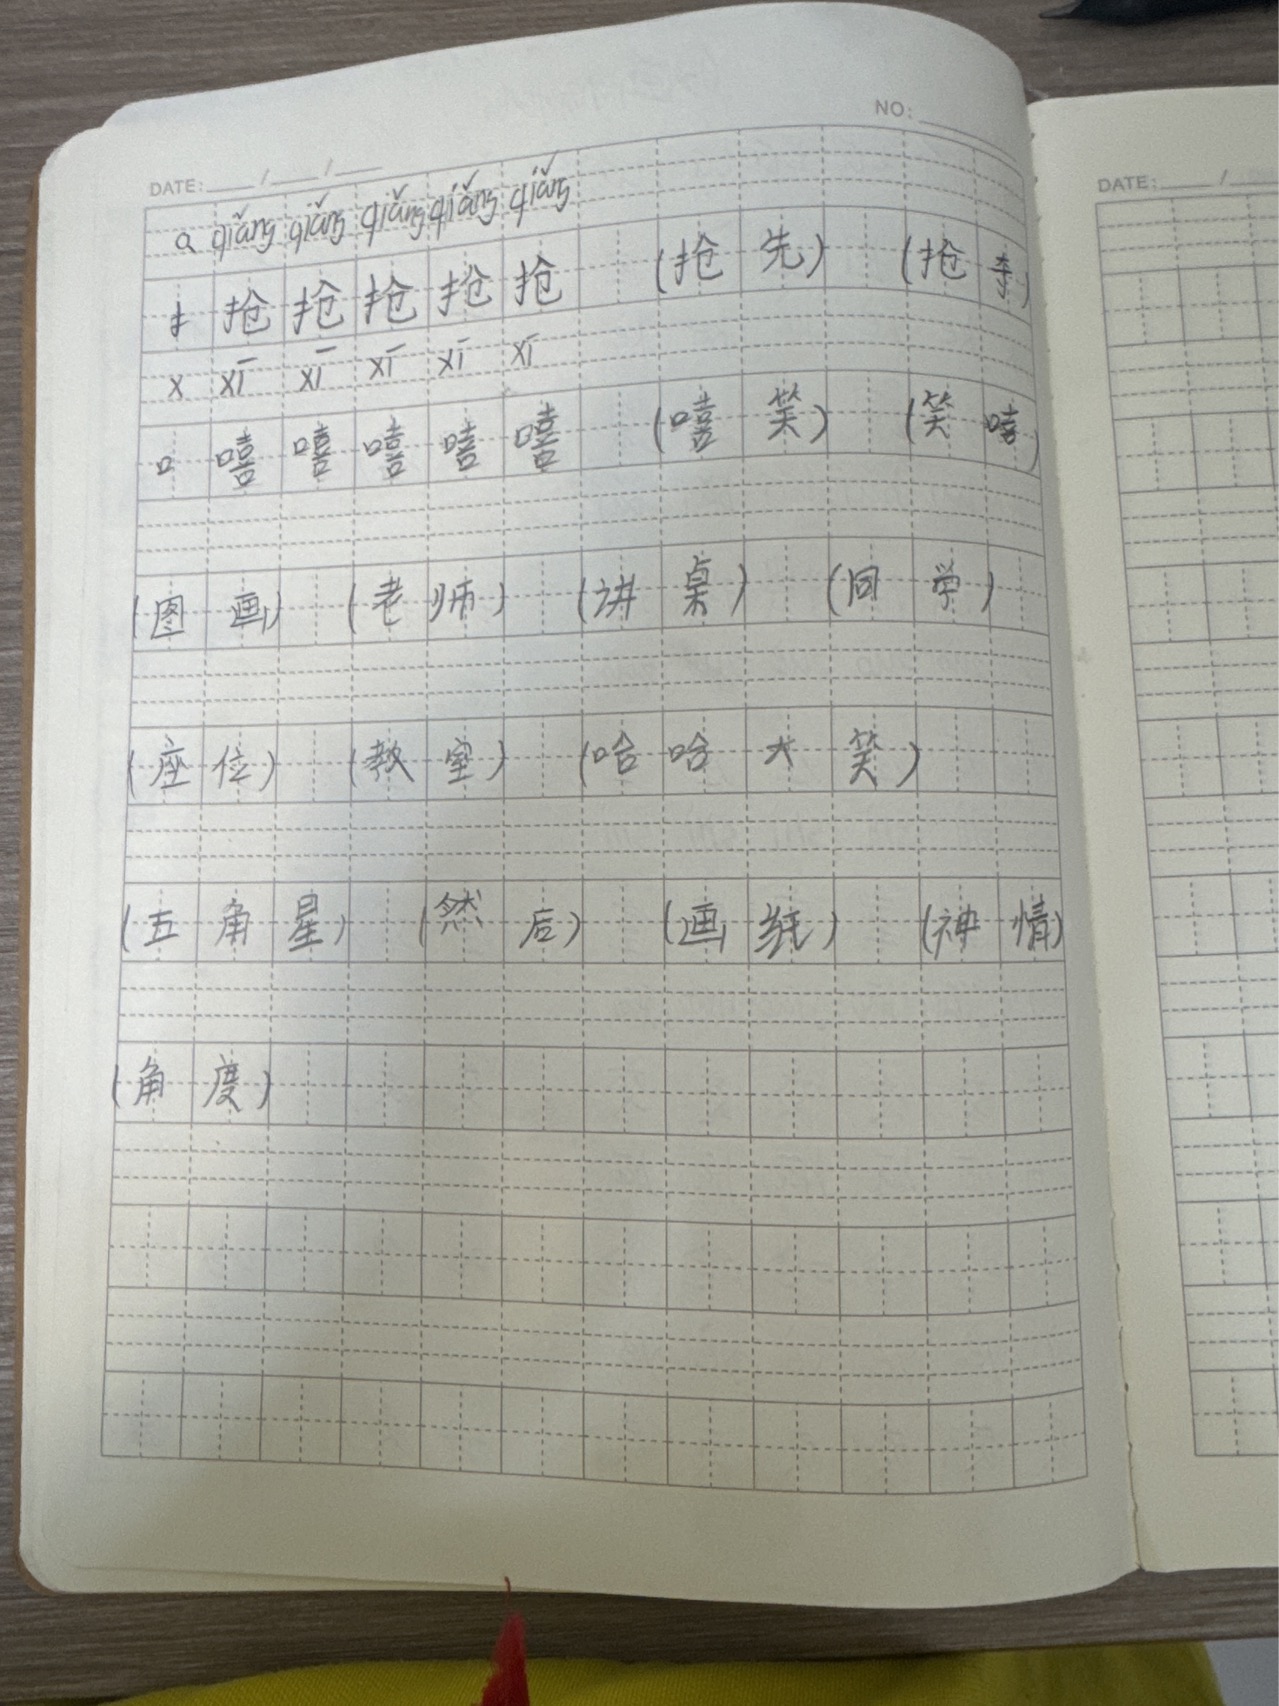 NO:
DATE: / /
DATE: /
q qiǎng qiǎng qiǎng qiǎng qiǎng
扌 抢 抢 抢 抢 抢 (抢先) (抢夺)
x xī xī xī xī xī
口 嘻 嘻 嘻 嘻 嘻 (嘻笑) (笑嘻)
(图画) (老师) (讲桌) (同学)
(座位) (教室) (哈哈大笑)
(五角星) (然后) (画纸) (神情)
(角度)